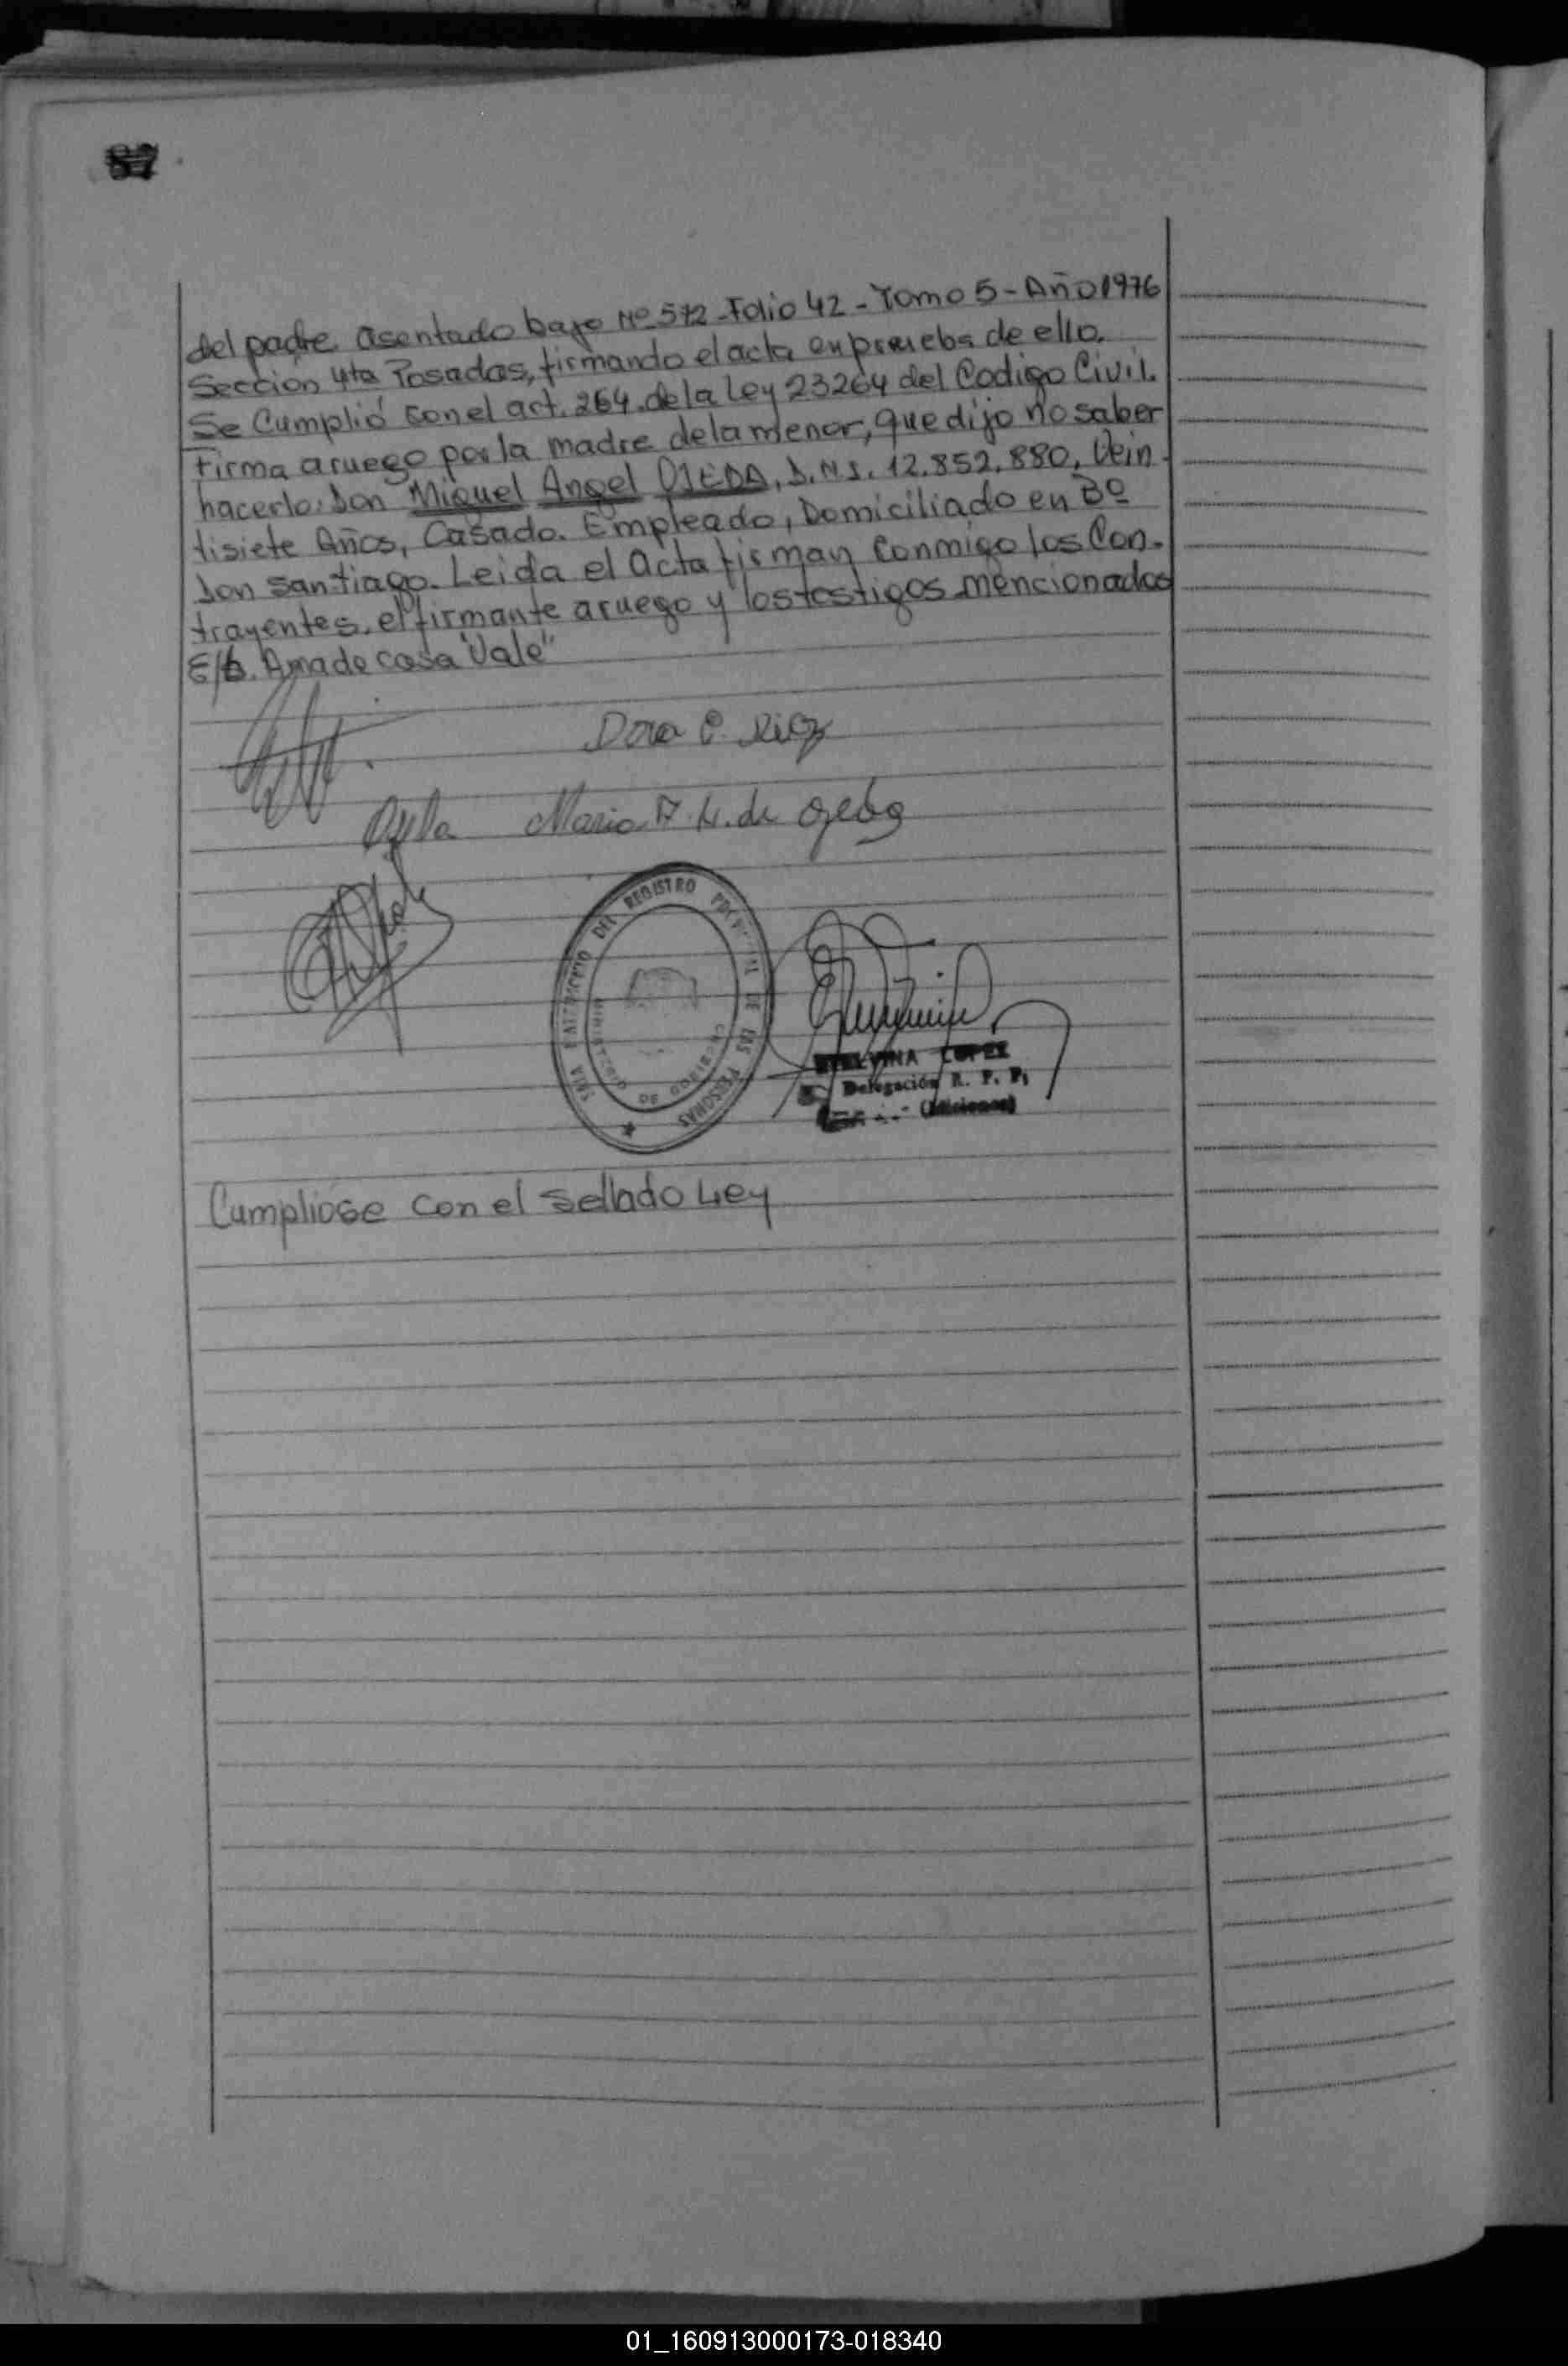 87
del padre asentado bajo Nº 572-Folio 42-Tomo 5-Año 1976
Sección 4ta Posadas, firmando el acta en prueba de ello.
Se Cumplió con el art. 264. de la Ley 23264 del Codigo Civil.
Firma a ruego por la madre de la menor, que dijo no saber
hacerlo: Don Miguel Angel OJEDA, D.N.I. 12.852.880, Vein-
tisiete Años, Casado. Empleado, Domiciliado en Bº
Don Santiago. Leida el Acta firman Conmigo los Con-
trayentes, el firmante a ruego y los testigos mencionados
E/L. Ama de casa "Vale"
Dora E. Diaz
Maria de Ojeda
DEL REGISTRO DE LAS PERSONAS
LOPEZ
Delegación R. P. P.
(Misiones)
Cumplióse con el Sellado Ley
01_160913000173-018340